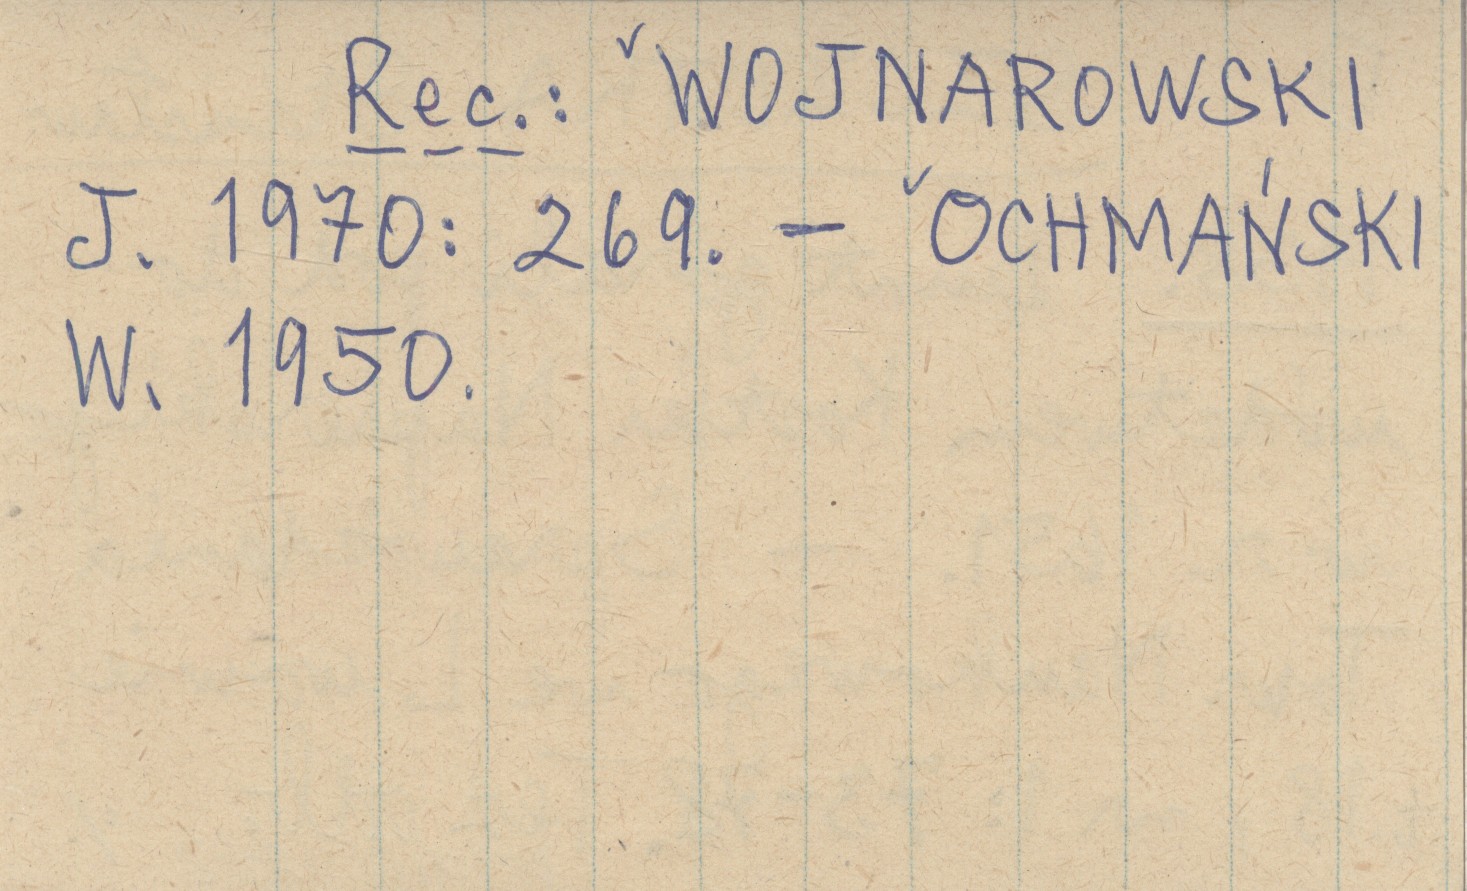 Rec.: ˇWOJNAROWSKI
J. 1970: 269. – ˇOCHMAŃSKI
W. 1950.